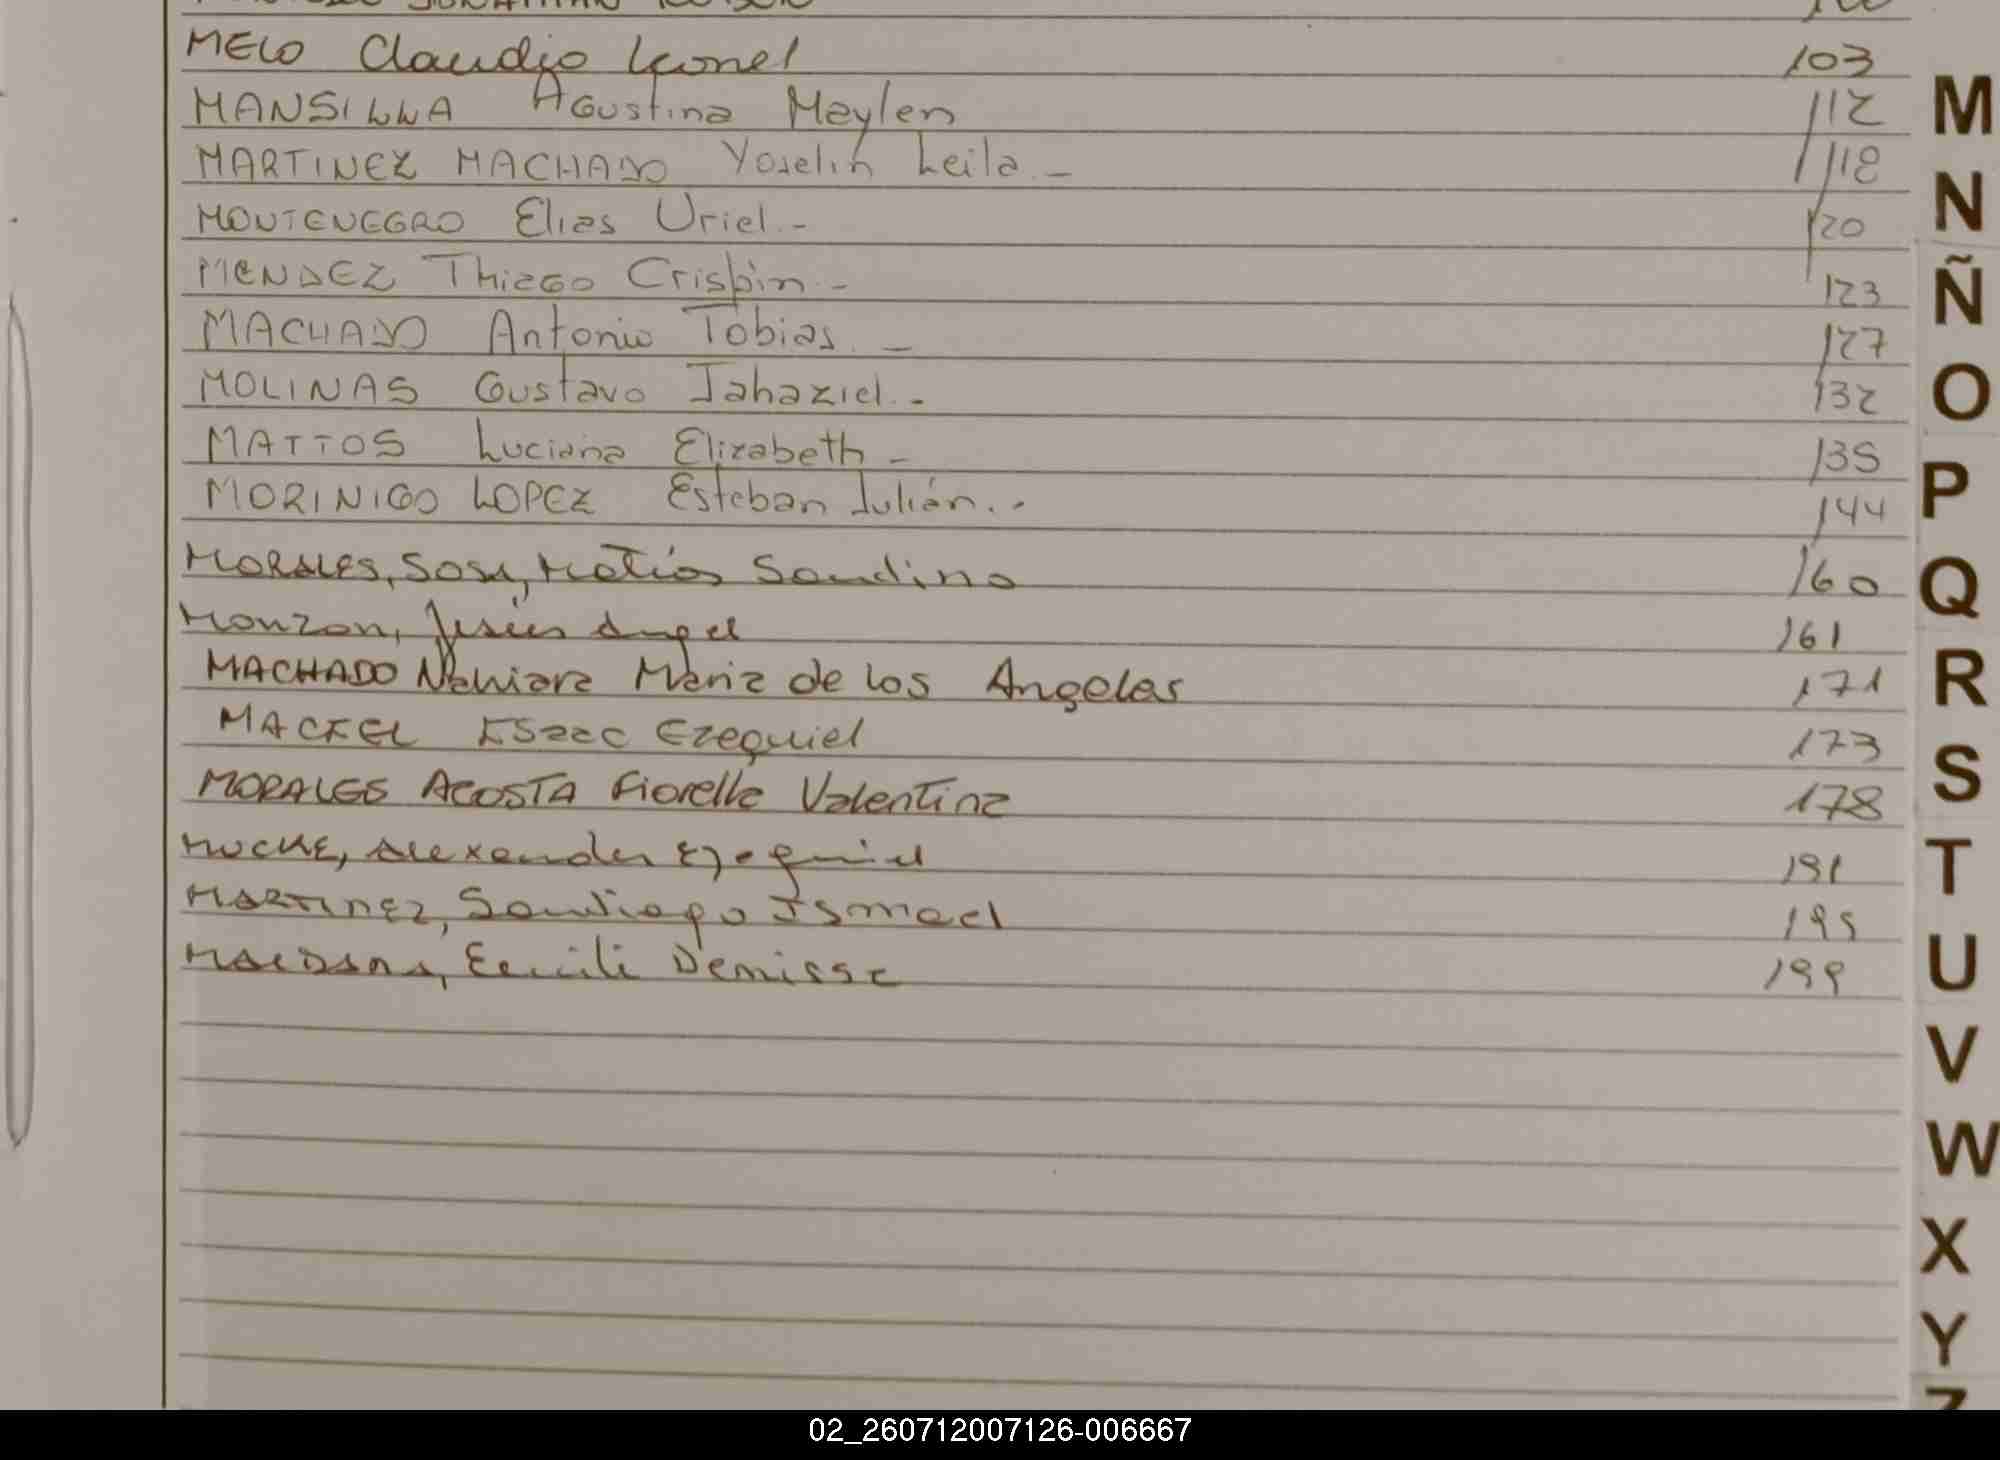 JONATHAN
MELO Claudio Leonel 103
MANSILLA Agustina Maylen 112
MARTINEZ MACHADO Yoselin Leila.- 118
MONTENEGRO Elias Uriel.- 120
MENDEZ Thiago Crispin.- 123
MACHADO Antonio Tobias.- 127
MOLINAS Gustavo Jahaziel.- 132
MATTOS Luciana Elizabeth- 135
MORINIGO LOPEZ Esteban Julián.- 144
MORALES, SOSA, Matías Sandino 160
Monzon, Jesús Angel 161
MACHADO Nahiara Maria de los Angeles 171
MACIEL ISaac Ezequiel 173
MORALES ACOSTA Fiorella Valentina 178
MUCKE, Alexander Ezequiel 191
MARTINEZ, Santiago Ismael 195
MAIDANA, Emili Denisse 199
M
N
Ñ
O
P
Q
R
S
T
U
V
W
X
Y
Z
02_260712007126-006667